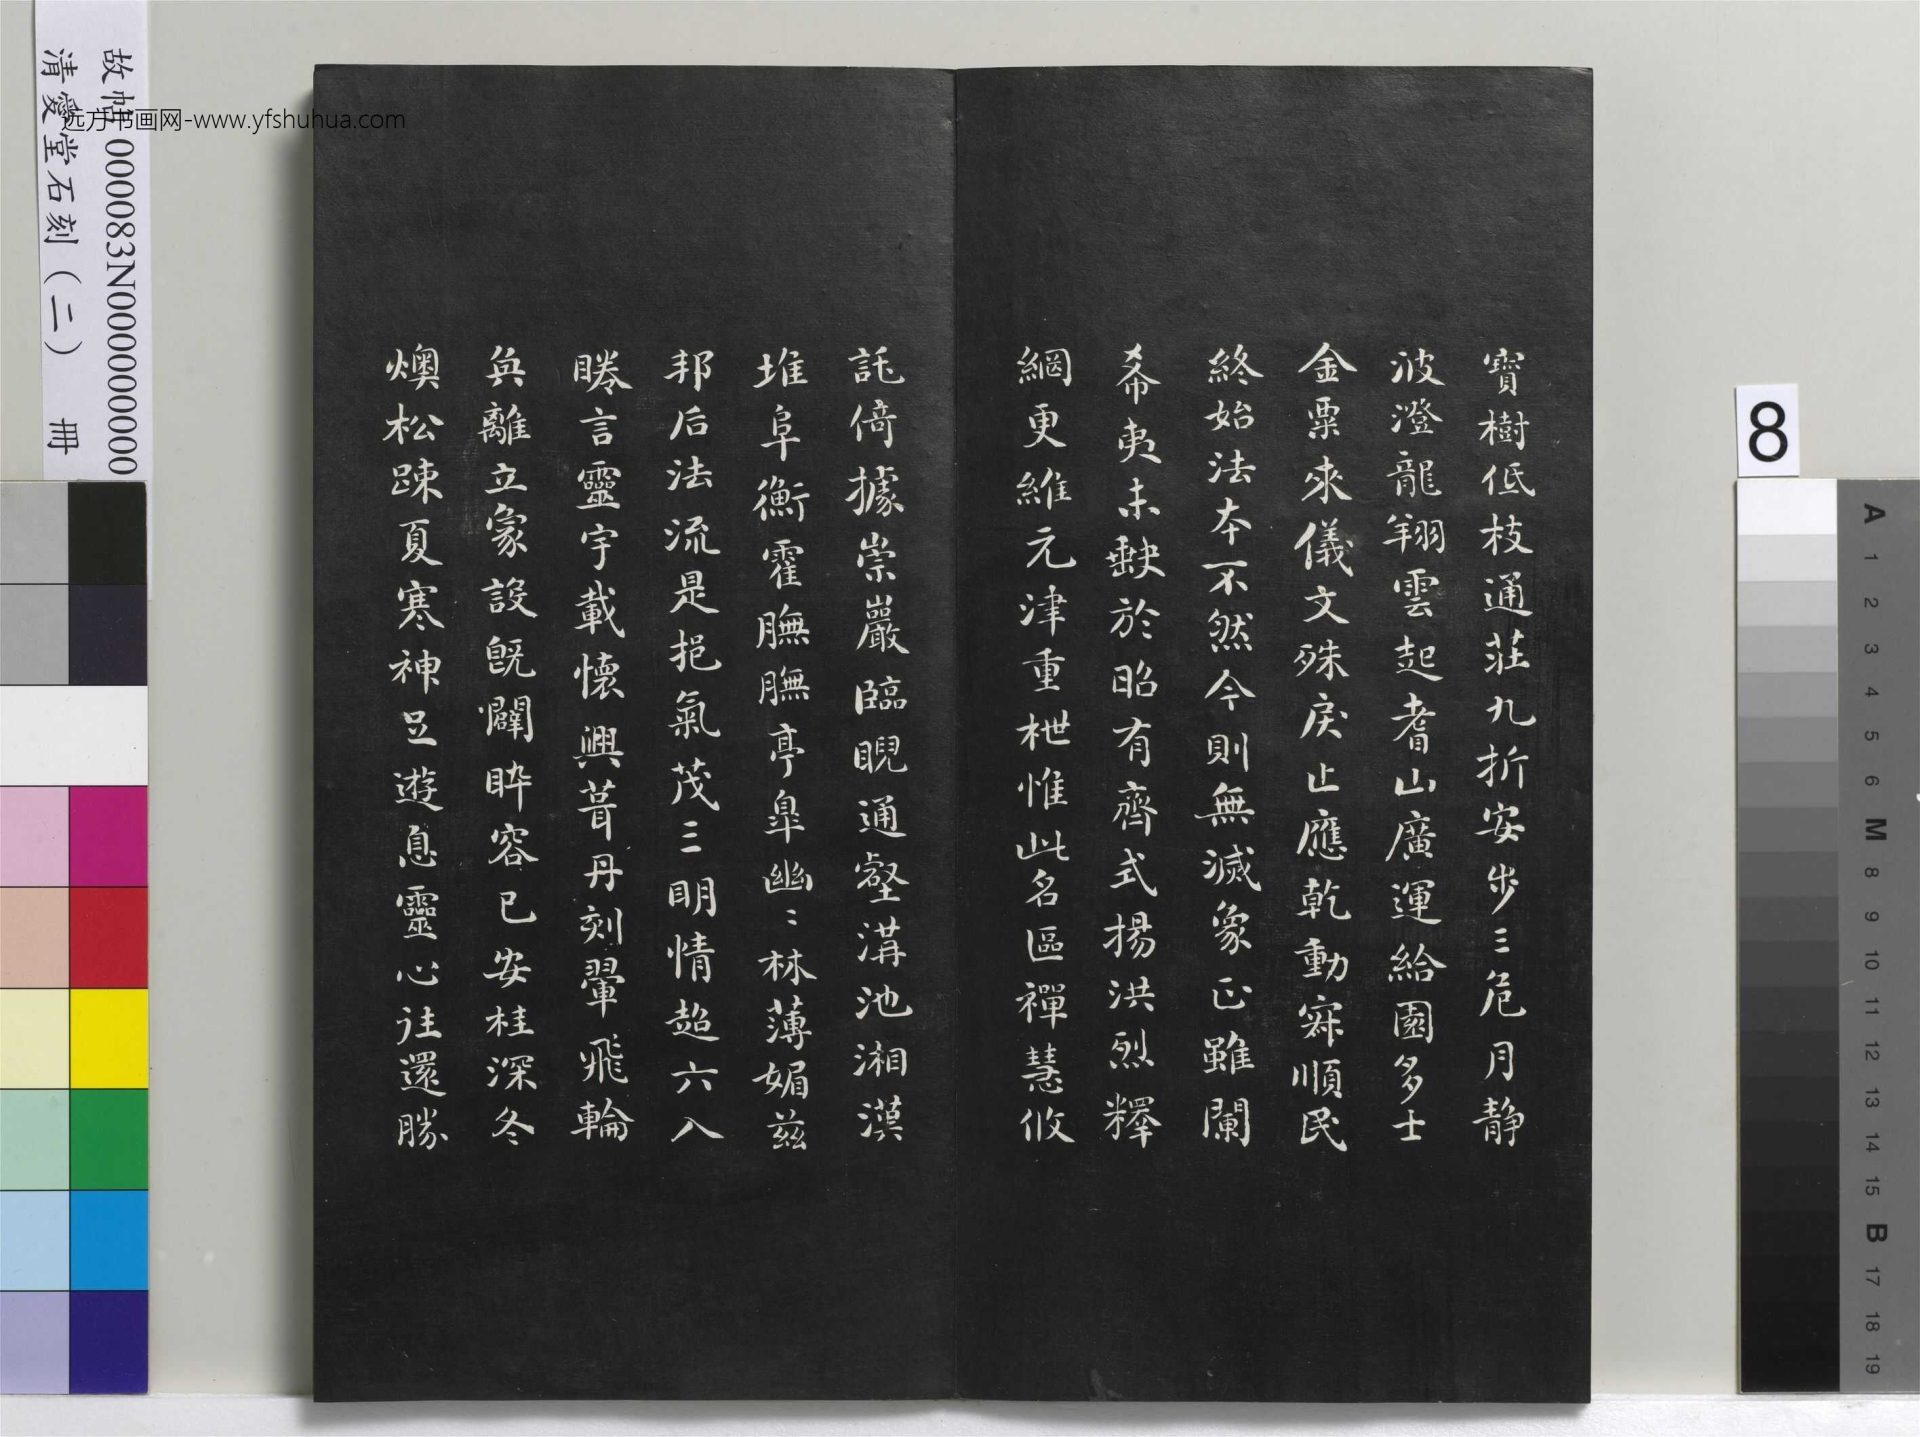 寶樹低枝通莊九折安步三危月静
波澄龍翔雲起耆山廣運給園多士
金粟來儀文殊戾止應乾動寂順民
終始法本不然今則無滅象正雖闌
希夷未缺於昭有齊式揚洪烈釋
網更維元津重枻惟此名區禪慧攸
託倚據崇巖臨睨通壑溝池湘漢
堆阜衡霍膴膴亭皐幽〻林薄媚茲
邦后法流是挹氣茂三明情超六入
眷言靈宇載懷興葺丹刻翬飛輪
奐離立象設既闢睟容已安桂深冬
燠松踈夏寒神足遊息靈心往還勝
故帖 000083N000000000
清愛堂石刻(二) 冊
远方书画网-www.yfshuhua.com
8
A
1
2
3
4
5
6
M
8
9
10
11
12
13
14
15
B
17
18
19